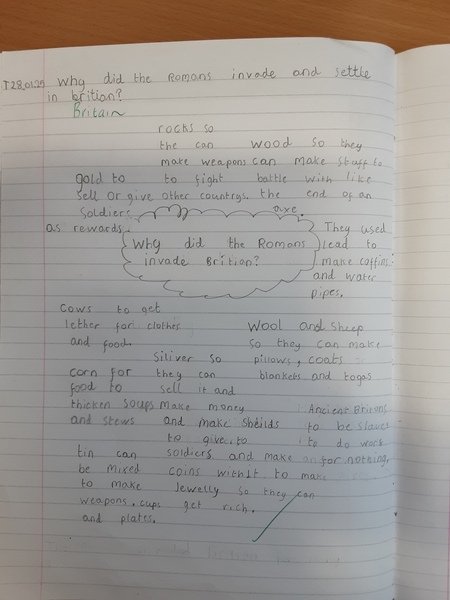 T28.01.25 Why did the Romans invade and settle
in britian?
Britain
rocks so
the can wood so they
make weapons can make staff to
gold to to fight battle with like
sell or give other countrys. the end of an
soldiers axe.
as rewards. They used
Why did the Romans lead to
invade Brition? make coffins
and water
pipes.
cows to get
lether for clothes wool and sheep
and food. so they can make
Siliver so pillows, coats
corn for they can blankets and togas
food to sell it and
thicken soups make money Ancient Britons
and stews and make sheilds to be slaves
to give to to do work
tin can soldiers and make for nothing.
be mixed coins with it to make
to make Jewelly so they can
weapons, cups get rich.
and plates.